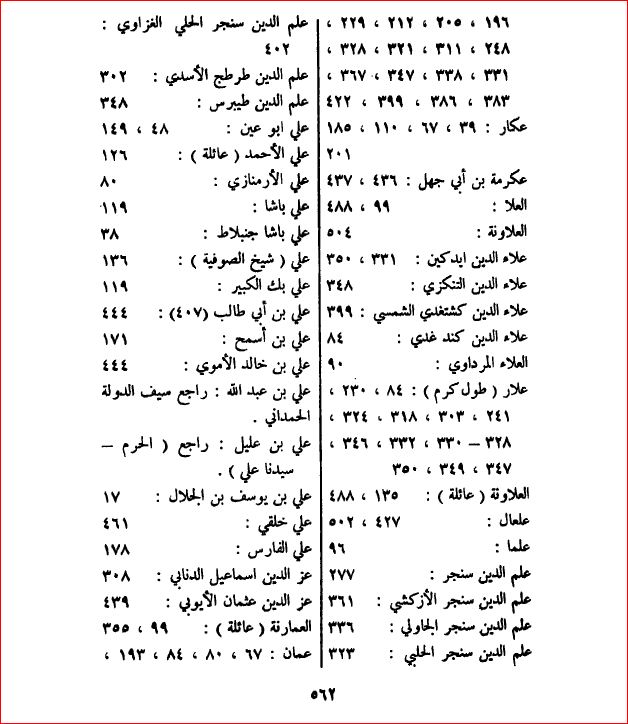 ١٩٦ ، ٢٠٥ ، ٢١٢ ، ٢٢٩ ،
٢٤٨ ، ٣١١ ، ٣٢١ ، ٣٢٨ ،
٣٣١ ، ٣٣٨ ، ٣٤٧ ، ٣٦٧ ،
٣٨٣ ، ٣٨٦ ، ٣٩٩ ، ٤٢٢
عكار : ٣٩ ، ٦٧ ، ١١٠ ، ١٨٥
٢٠١
عكرمة بن أبي جهل : ٤٣٦ ، ٤٣٧
العلا : ٩٩ ، ٤٨٨
العلاونة : ٥٠٤
علاء الدين ايدكين : ٣٣١ ، ٣٥٠
علاء الدين التنكزي : ٣٤٨
علاء الدين كشتغدي الشمسي : ٣٩٩
علاء الدين كند غدي : ٨٤
العلاء المرداوي : ٩٠
علار ( طول كرم ) : ٨٤ ، ٢٣٠ ،
٢٤١ ، ٣٠٣ ، ٣١٨ ، ٣٢٤ ،
٣٢٨ – ٣٣٠ ، ٣٣٢ ، ٣٤٦ ،
٣٤٧ ، ٣٤٩ ، ٣٥٠
العلاونة ( عائلة ) : ١٣٥ ، ٤٨٨
علعال : ٤٢٧ ، ٥٠٢
علما : ٩٦
علم الدين سنجر : ٢٧٧
علم الدين سنجر الأزكشي : ٣٦١
علم الدين سنجر الجاولي : ٣٣٦
علم الدين سنجر الحلبي : ٣٢٣
علم الدين سنجر الحلي الغزاوي :
٤٠٢
علم الدين طرطج الأسدي : ٣٠٢
علم الدين طيبرس : ٣٤٨
علي ابو عين : ٤٨ ، ١٤٩
علي الأحمد ( عائلة ) : ١٢٦
علي الأرمنازي : ٨٠
علي باشا : ١١٩
علي باشا جنبلاط : ٣٨
علي ( شيخ الصوفية ) : ١٣٦
علي بك الكبير : ١١٩
علي بن أبي طالب (٤٠٧) : ٤٤٤
علي بن أسمح : ١٧١
علي بن خالد الأموي : ٤٤٤
علي بن عبد الله : راجع سيف الدولة
الحمداني .
علي بن عليل : راجع ( الحرم –
سيدنا علي ) .
علي بن يوسف بن الجلال : ١٧
علي خلقي : ٤٦١
علي الفارس : ١٧٨
عز الدين اسماعيل الدنابي : ٣٠٨
عز الدين عثمان الأيوبي : ٤٣٩
العمارنة ( عائلة ) : ٩٩ ، ٣٥٥
عمان : ٦٧ ، ٨٠ ، ٨٤ ، ١٩٣ ،
٥٦٢